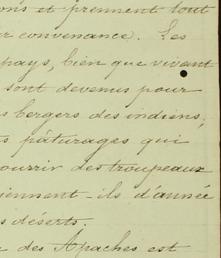 ons et prennent tout
r convenance. Les
pays, bien que vivant
sont devenus pour
s bergers des indiens,
s pâturages qui
ourrir des troupeaux
iennent-ils d'année
s déserts.
e des Apaches est